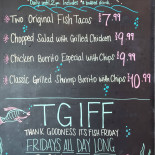 Two Original Fish Tacos $7.99
Chopped Salad with Grilled Chicken $9.99
Chicken Burrito Especial with Chips $9.99
Classic Grilled Shrimp Burrito with Chips $10.99
TGIFF
THANK GOODNESS IT'S FISH FRIDAY
FRIDAYS ALL DAY LONG